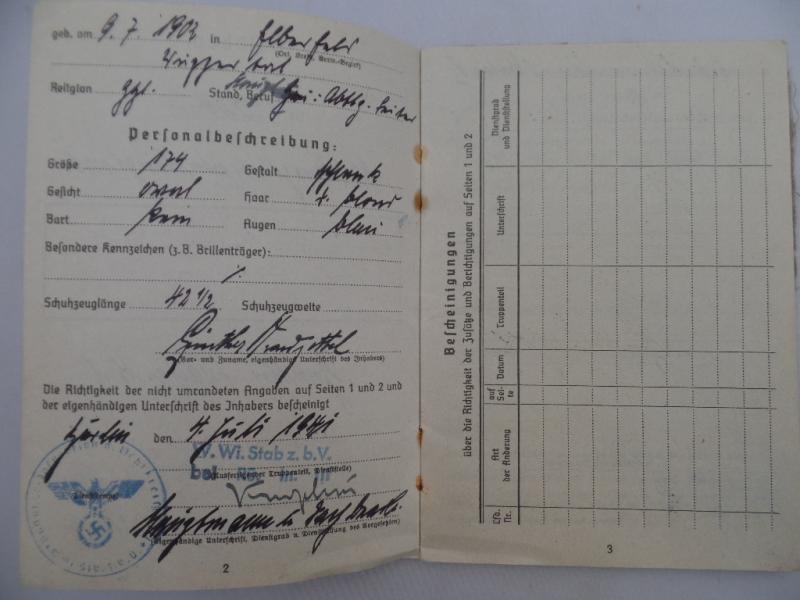 geb. am 9. 7. 1902 in Elberfeld
(Ort, Kreis, Verw.-Bezirk)
Wuppertal
Religion ggl. Stand, Beruf Abtlg. Leiter
Personalbeschreibung:
Größe 174 Gestalt schlank
Gesicht oval Haar d. blond
Bart kein Augen blau
Besondere Kennzeichen (z. B. Brillenträger):
Schuhzeuglänge 42 1/2 Schuhzeugweite
Günther
(Vor- und Zuname, eigenhändige Unterschrift des Inhabers)
Die Richtigkeit der nicht umrandeten Angaben auf Seiten 1 und 2 und
der eigenhändigen Unterschrift des Inhabers bescheinigt
Berlin den 4. Juli 1941
W. Wi. Stab z. b. V.
(Ausfertigender Truppenteil, Dienststelle)
Hauptmann u.
(Eigenhändige Unterschrift, Dienstgrad u. Dienststellung des Vorgesetzten)
2
Bescheinigungen
über die Richtigkeit der Zusätze und Berichtigungen auf Seiten 1 und 2
Lfd. Nr.
Art der Änderung
auf Seite
Datum
Truppenteil
Unterschrift
Dienstgrad und Dienststellung
3